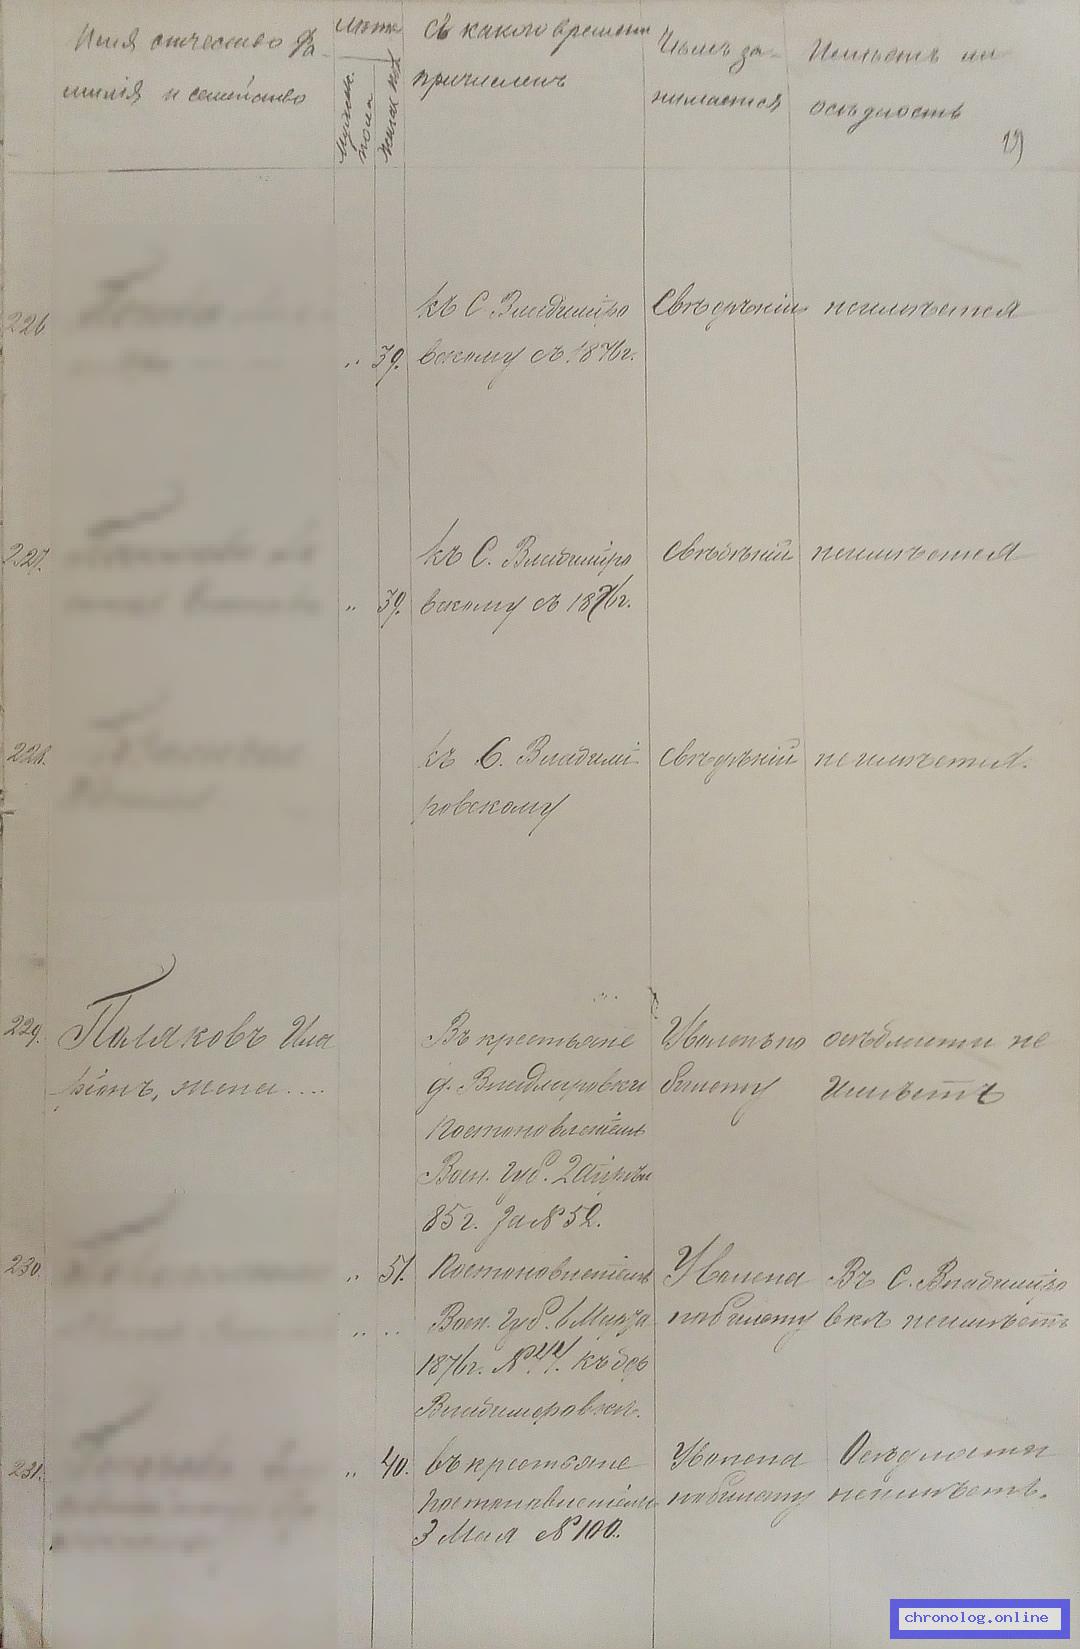 Имя отчество Фа-
милія и семейство
Лѣта
Мужск. пола
Женск.
Съ какого времени
причисленъ
Чѣмъ за-
нимается
Имѣетъ ли
осѣдлость
226.
„ 39.
къ С. Владиміро
вскому съ 1876г.
Свѣдѣній
неимѣется
227.
„ 39.
къ С. Владиміро
вскому съ 1876г.
свѣдѣній
неимѣется
228.
къ С. Владимі-
ровскому
свѣдѣній
неимѣется.
229.
Поляковъ Ила
ріонъ, жена ....
Въ крестьяне
д. Владимировки
Постановленіемъ
Воен. Губ. 2 Апрѣля
85г. За № 52.
Уволенъ по
билету
осѣдлости не
Имѣетъ
230.
„ 51.
Постановленіемъ
Воен. Губ. 6 Марта
1876г. № 44. къ об
Владимировск.
Уволена
по билету
Въ С. Владиміро
вкѣ неимѣетъ
231.
„ 40.
въ крестьяне
постановленіемъ
3 Мая № 100.
Уволена
по билету
Осѣдлости
неимѣетъ.
chronolog.online